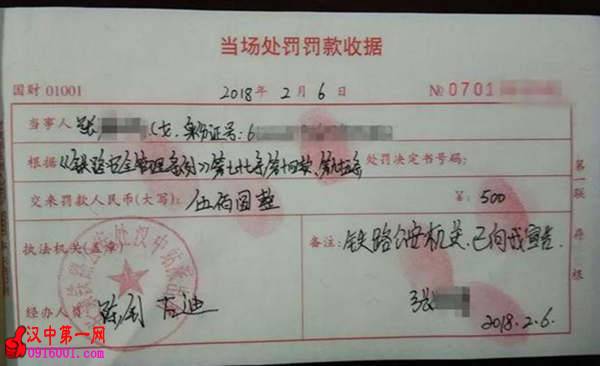 当场处罚罚款收据
国财 01001 2018年 2月 6日 № 0701
当事人 张 (女. 身份证号: 6
根据《铁路安全管理条例》第七十七条第十四款、第九十五条 处罚决定书号码:
交来罚款人民币(大写): 伍佰圆整 ¥: 500
执法机关(盖章) 备注: 铁路公安机关已向我宣告.
经办人员:
张
2018.2.6.
第一联 存根
汉中第一网
0916001.com